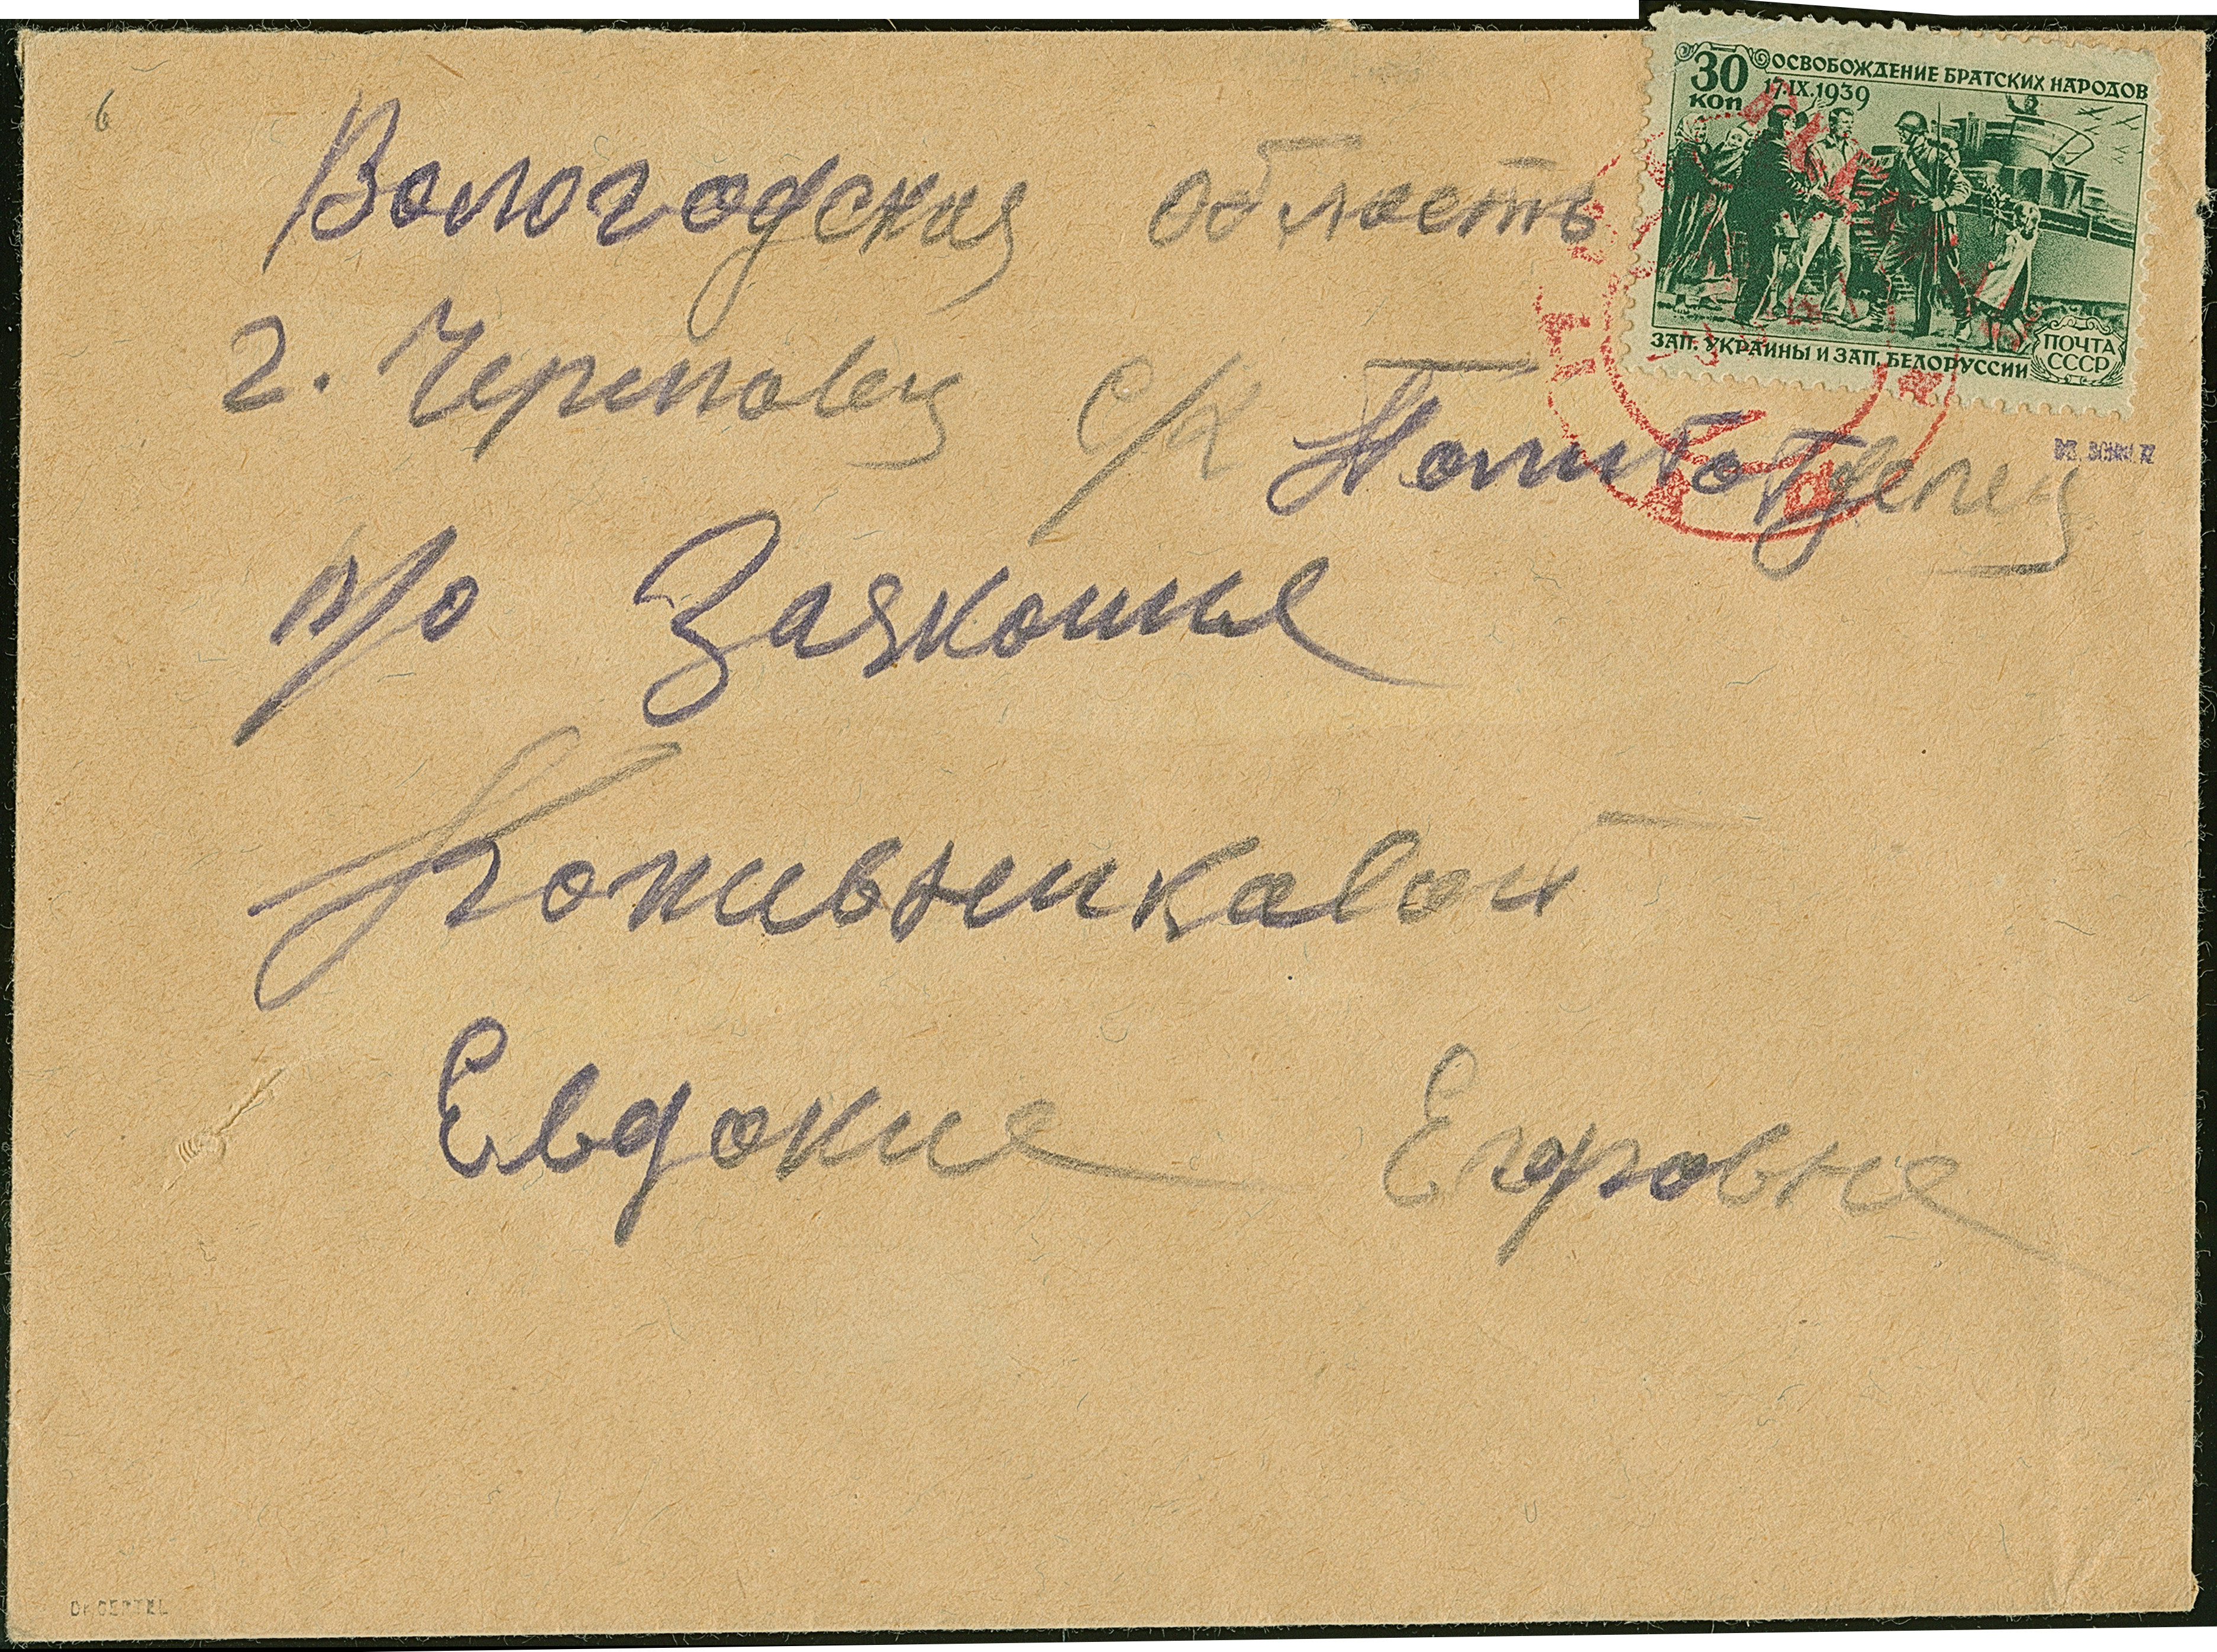 6
30 КОП ОСВОБОЖДЕНИЕ БРАТСКИХ НАРОДОВ
17.IX.1939
ЗАП. УКРАИНЫ И ЗАП. БЕЛОРУССИИ
ПОЧТА СССР
Вологодская область
г. Череповец с/х Политотделец
п/о Заякошье
Евдокие Егоровне